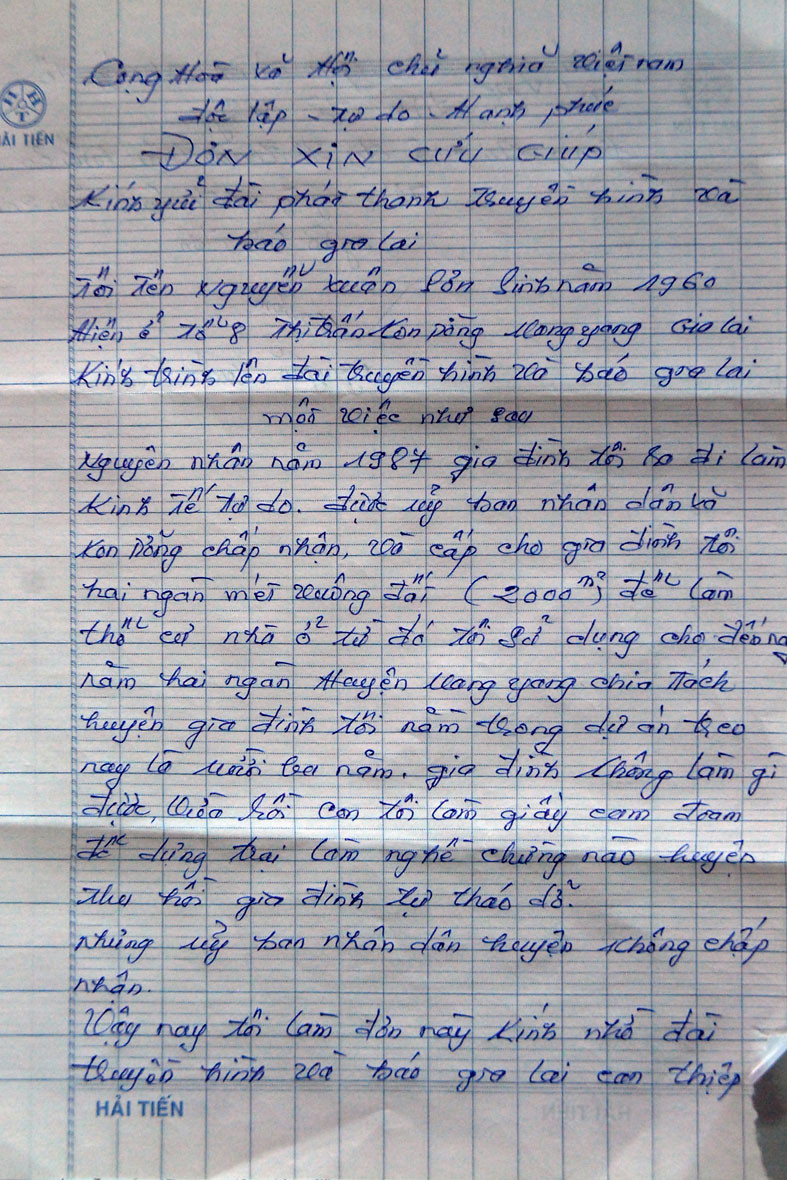 Cộng Hoà xã Hội chủ nghĩa Việt nam
độc lập - Tự do - Hạnh phúc
HẢI TIẾN
ĐƠN XIN CỨU GIÚP
Kính gửi đài phát thanh truyền hình và
báo gia lai
Tôi Tên Nguyễn Xuân Sơn Sinh năm 1960
Hiện ở Tổ 8 Thị trấn Kon Dỏng Mang yang Gia lai
Kính trình lên đài truyền hình và báo gia lai
một việc như sau
Nguyên nhân năm 1987 gia đình tôi ra đi làm
Kinh tế tự do. được uỷ ban nhân dân xã
Kon Dỏng chấp nhận, và cấp cho gia đình tôi
hai ngàn mét vuông đất (2000m²) để làm
thổ cư nhà ở từ đó tôi sử dụng cho đến nay
năm hai ngàn Huyện Mang yang chia Tách
huyện gia đình tôi nằm trong dự án treo
nay là mười ba năm. gia đình không làm gì
được, vừa rồi con tôi làm giấy cam đoan
để dựng trại làm nghề chừng nào huyện
thu hồi gia đình tự tháo dỡ.
nhưng uỷ ban nhân dân huyện không chấp
nhận.
Vậy nay tôi làm đơn này Kính nhờ đài
truyền hình và báo gia lai can thiệp
HẢI TIẾN